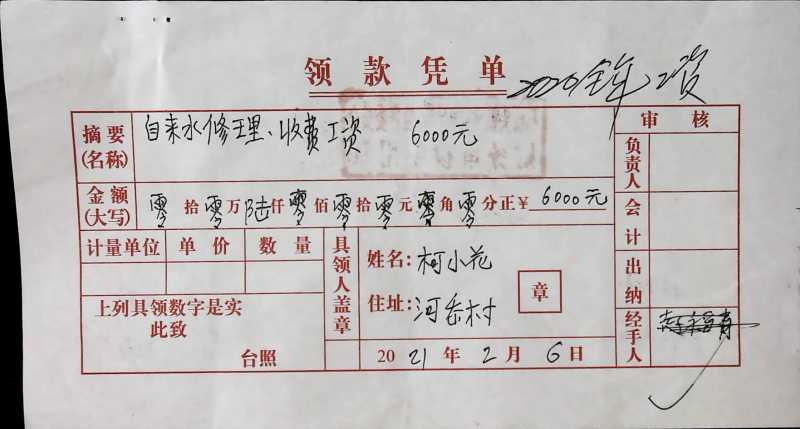 领款凭单
2020全年工资
摘要(名称) 自来水修理、收费工资 6000元
审核
负责人
金额(大写) 零拾零万陆仟零佰零拾零元零角零分正¥6000元
会计
计量单位 单价 数量
具领人盖章
姓名:柯小花
章
出纳
住址:河岙村
上列具领数字是实
此致
台照
2021年2月6日
经手人